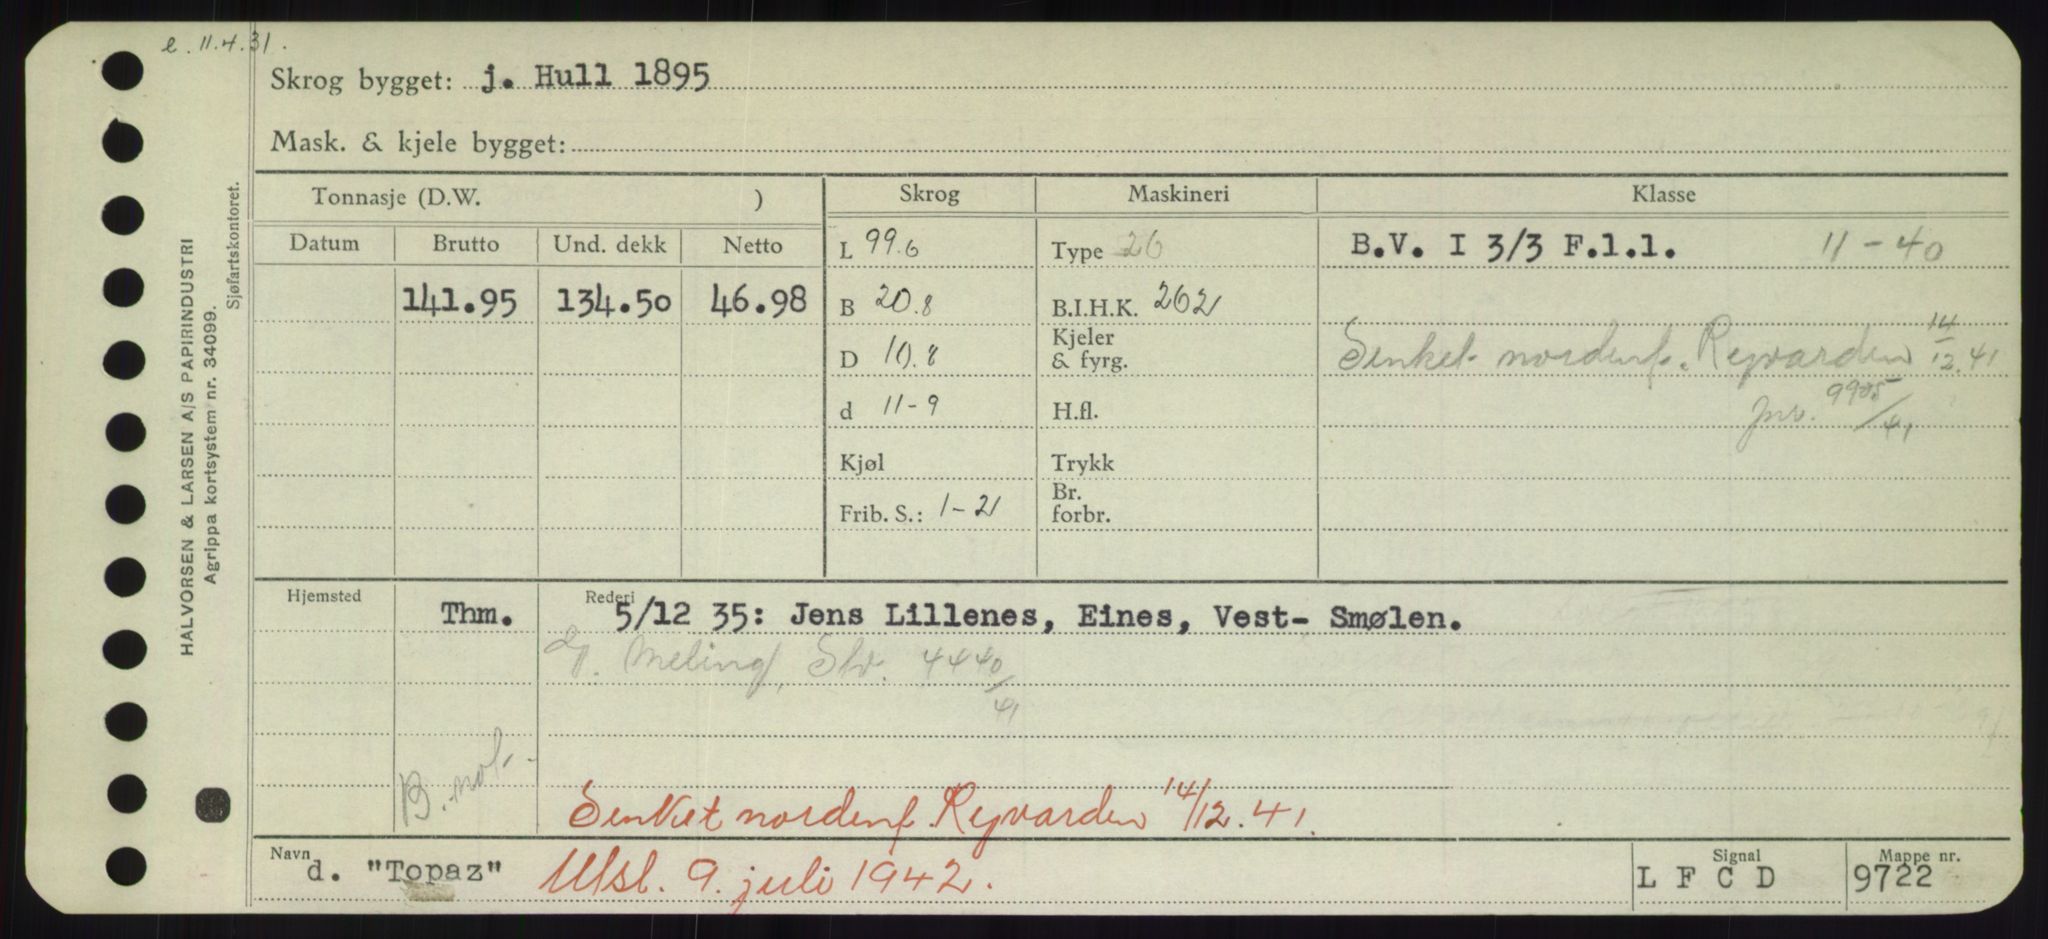 e. 11.4.31.
Skrog bygget: j. Hull 1895
Mask. & kjele bygget:
Tonnasje (D.W. ) Skrog Maskineri Klasse
Datum Brutto Und. dekk Netto L 99.6 Type 26 B.V. I 3/3 F.l.l. 11-40
141.95 134.50 46.98 B 20.8 B.I.H.K. 262
D 10.8 Kjeler & fyrg. Senket nordenf. Ryvarden 14/12.41
d 11-9 H.fl. 9905/41
Kjøl Trykk
Frib. S.: 1-21 Br. forbr.
Hjemsted Thm. Rederi 5/12 35: Jens Lillenes, Eines, Vest- Smølen.
Meling, Slv. 4440/41
B. not.
Senket nordenf. Ryvarden 14/12.41.
Navn d. "Topaz" Utsl. 9. juli 1942. Signal L F C D Mappe nr. 9722
HALVORSEN & LARSEN A/S PAPIRINDUSTRI
Agrippa kortsystem nr. 34099.
Sjøfartskontoret.